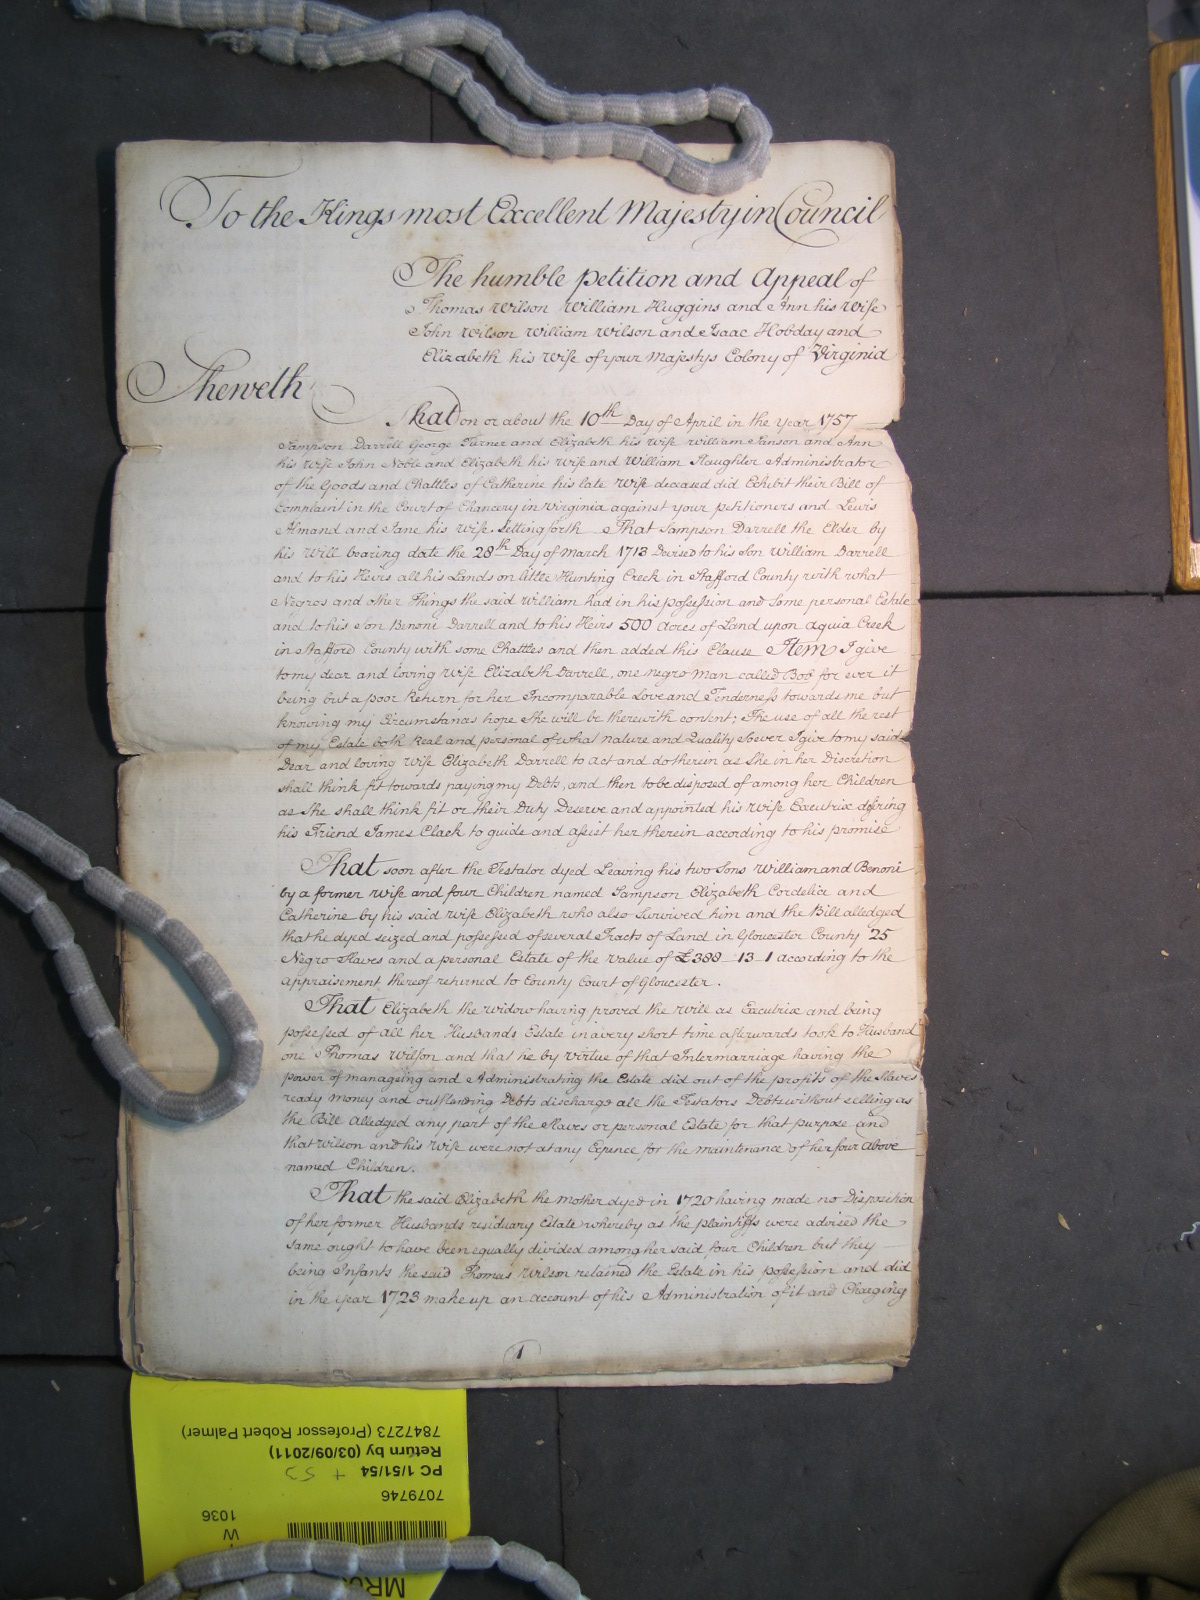 To the Kings most Excellent Majesty in Council
The humble Petition and Appeal of
Thomas Wilson William Huggins and Ann his Wife
John Wilson William Wilson and Isaac Hobday and
Elizabeth his Wife of your Majestys Colony of Virginia
Sheweth
That on or about the 10th Day of April in the Year 1757
Sampson Darrell George Turner and Elizabeth his Wife William Sanson and Ann
his Wife John Noble and Elizabeth his Wife and William Slaughter Administrator
of the Goods and Chattles of Catherine his late Wife deceased did Exhibit their Bill of
Complaint in the Court of Chancery in Virginia against your petitioners and Lewis
Almand and Jane his Wife. Setting forth That Sampson Darrell the Elder by
his Will bearing date the 28th Day of March 1713 Devised to his Son William Darrell
and to his Heirs all his Lands on little Hunting Creek in Stafford County with what
Negros and other Things the said William had in his possession and Some personal Estate
and to his Son Benoni Darrell and to his Heirs 500 Acres of Land upon aquia Creek
in Stafford County with some Chattles and then added this Clause Item I give
to my dear and loving Wife Elizabeth Darrell, one negro Man called Bob for ever it
being but a poor Return for her Incomparable Love and Tenderness towards me but
knowing my Circumstances hope She will be therewith content; The use of all the rest
of my Estate both Real and personal of what nature and Quality soever I give to my said
Dear and loving Wife Elizabeth Darrell to act and do therein as She in her Discretion
shall think fit towards paying my Debts, and then to be disposed of among her Children
as She shall think fit or their Duty Deserve and appointed his Wife Executrix desiring
his Friend James Clack to guide and assist her therein according to his promise
That soon after the Testator dyed Leaving his two Sons William and Benoni
by a former Wife and four Children named Sampson Elizabeth Cordelia and
Catherine by his said Wife Elizabeth who also Survived him and the Bill alledged
that he dyed seized and possessed of several Tracts of Land in Gloucester County 25
Negro Slaves and a personal Estate of the value of £388 13 1 according to the
appraisment thereof returned to County Court of Gloucester.
That Elizabeth the widow having proved the will as Executrix and being
possessed of all her Husbands Estate in a very short time afterwards took to Husband
one Thomas Wilson and that he by virtue of that Intermarriage having the
power of manageing and Administrating the Estate did out of the profits of the Slaves
ready Money and outstanding Debts discharge all the Testators Debts without selling as
the Bill Alledged any part of the Slaves or personal Estate for that purpose and
that Wilson and his Wife were not at any Expence for the maintenance of her four above
named Children.
That the said Elizabeth the mother dyed in 1720 having made no Disposition
of her former Husbands residuary Estate whereby as the plaintiffs were advised the
same ought to have been equally divided among her said four Children but they
being Infants the said Thomas Wilson retained the Estate in his possession and did
in the Year 1723 make up an account of his Administration of it and Charging
1
7847273 (Professor Robert Palmer)
Return by (03/09/2011)
PC 1/51/54 + 53
7079746
1036
W